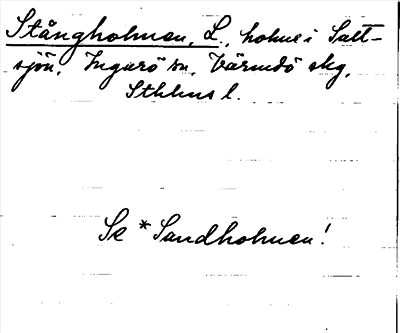 Stångholmen, L., holme i Salt-
sjön, Ingarö sn, Värmdö skg,
Sthlms l.
Se *Sandholmen!